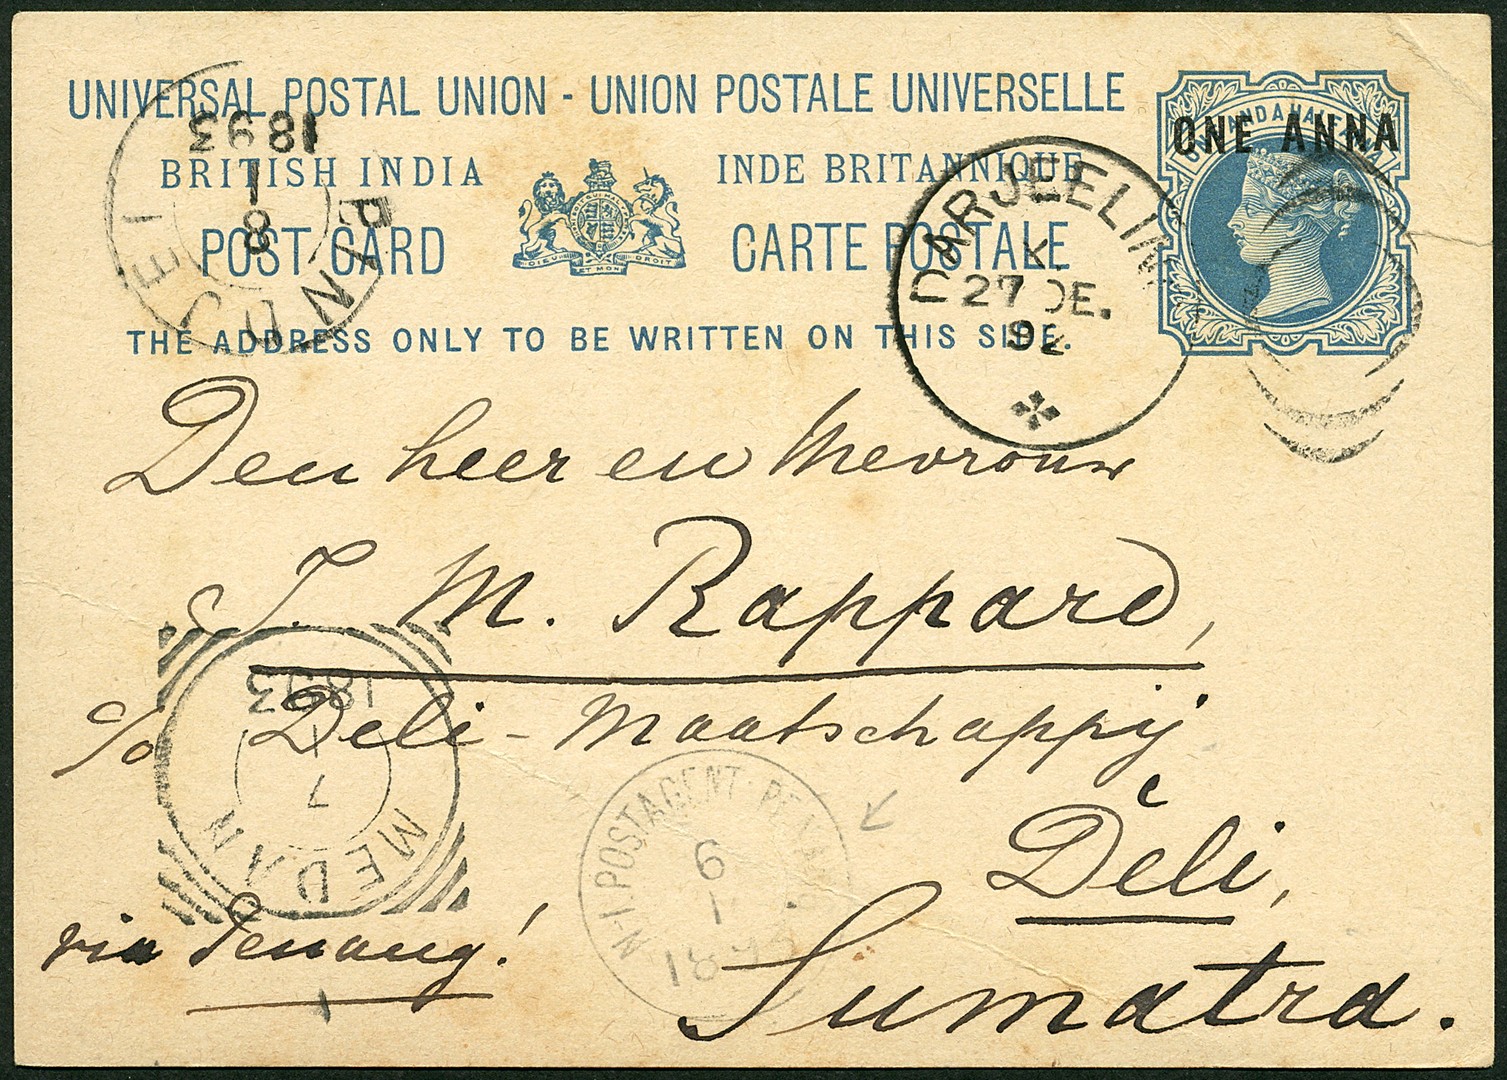 UNIVERSAL POSTAL UNION - UNION POSTALE UNIVERSELLE
BRITISH INDIA INDE BRITANNIQUE
POST CARD CARTE POSTALE
DIEU ET MON DROIT
THE ADDRESS ONLY TO BE WRITTEN ON THIS SIDE.
ONE ANNA
DARJEELIN
K
27 DE.
92
BINDJEI
8
1
1893
Den heer en Mevrouw
J. M. Rappard,
c/o Deli-Maatschappij
Deli,
Sumatra.
via Penang!
MEDAN
7
1
1893
N-I. POSTAGENT PENANG
6
1